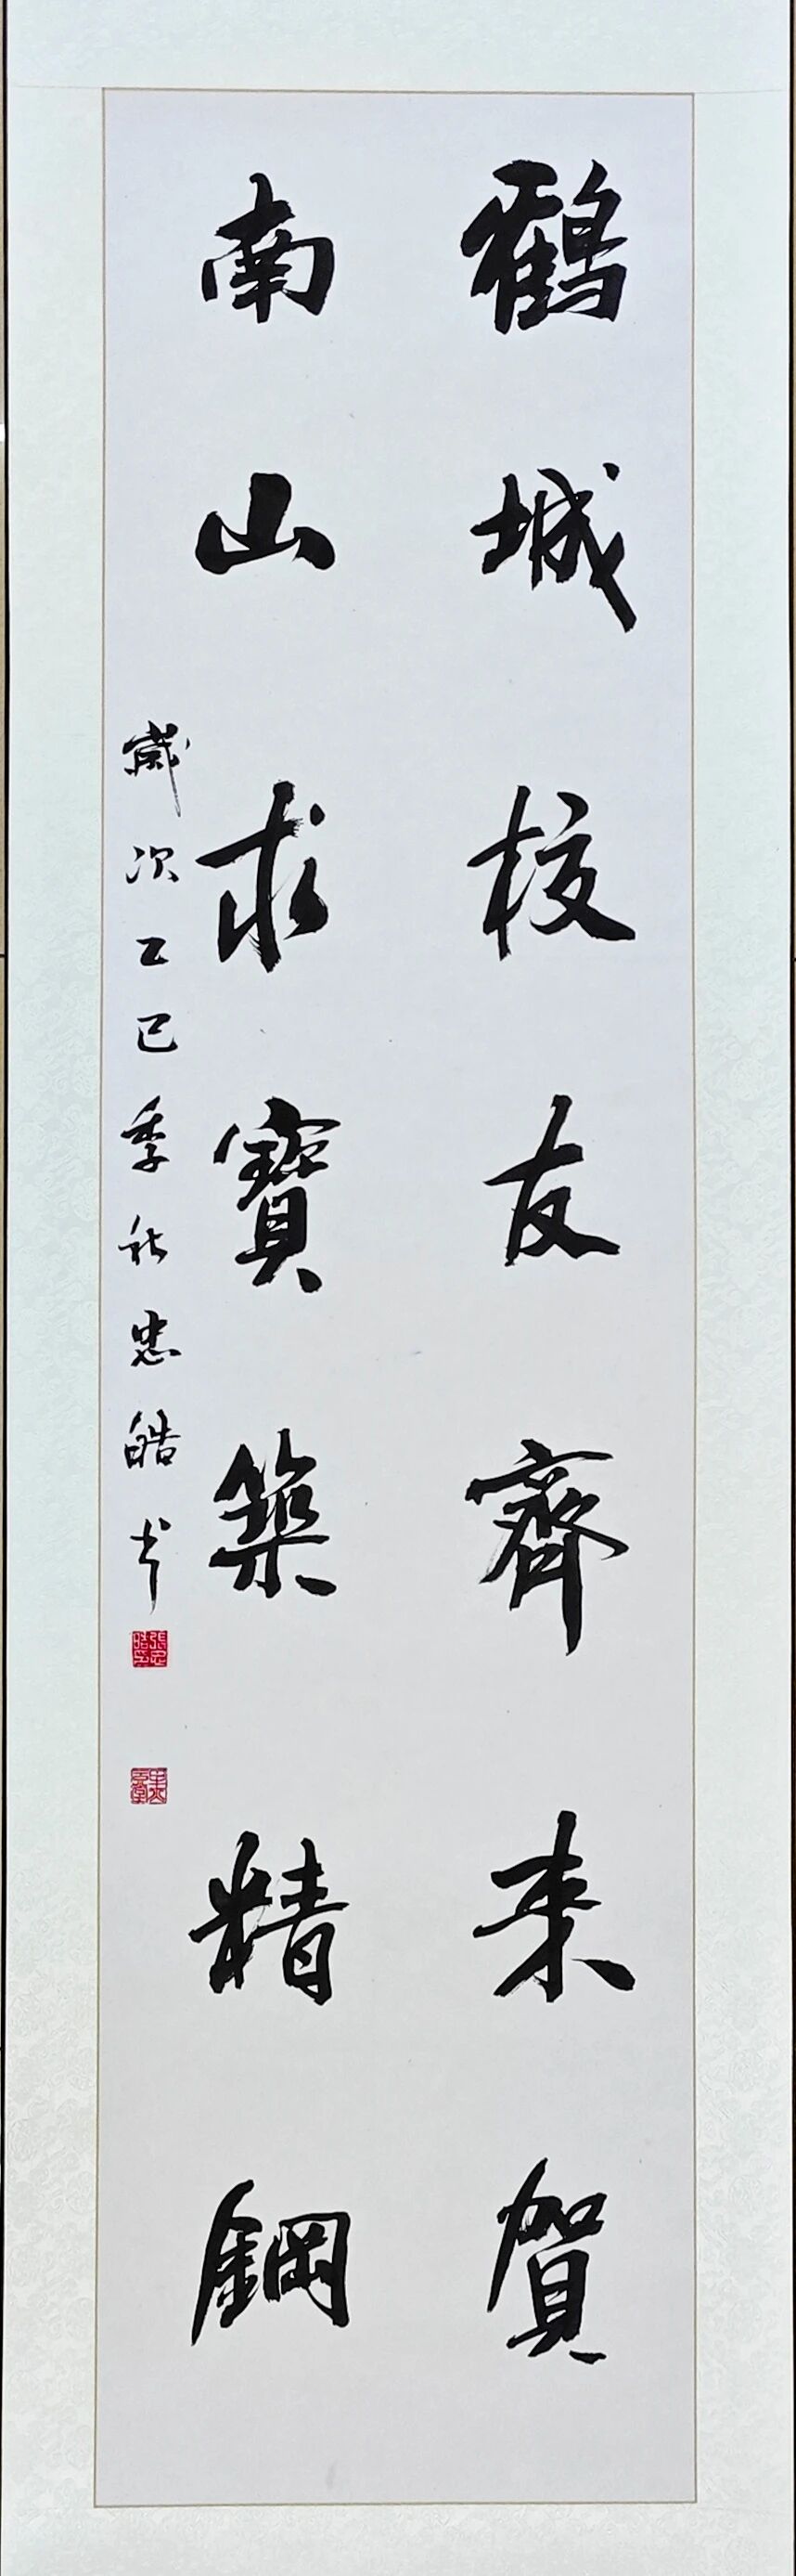 鶴城校友齊来賀
南山求寶築精鋼
歲次乙巳季秋忠皓书